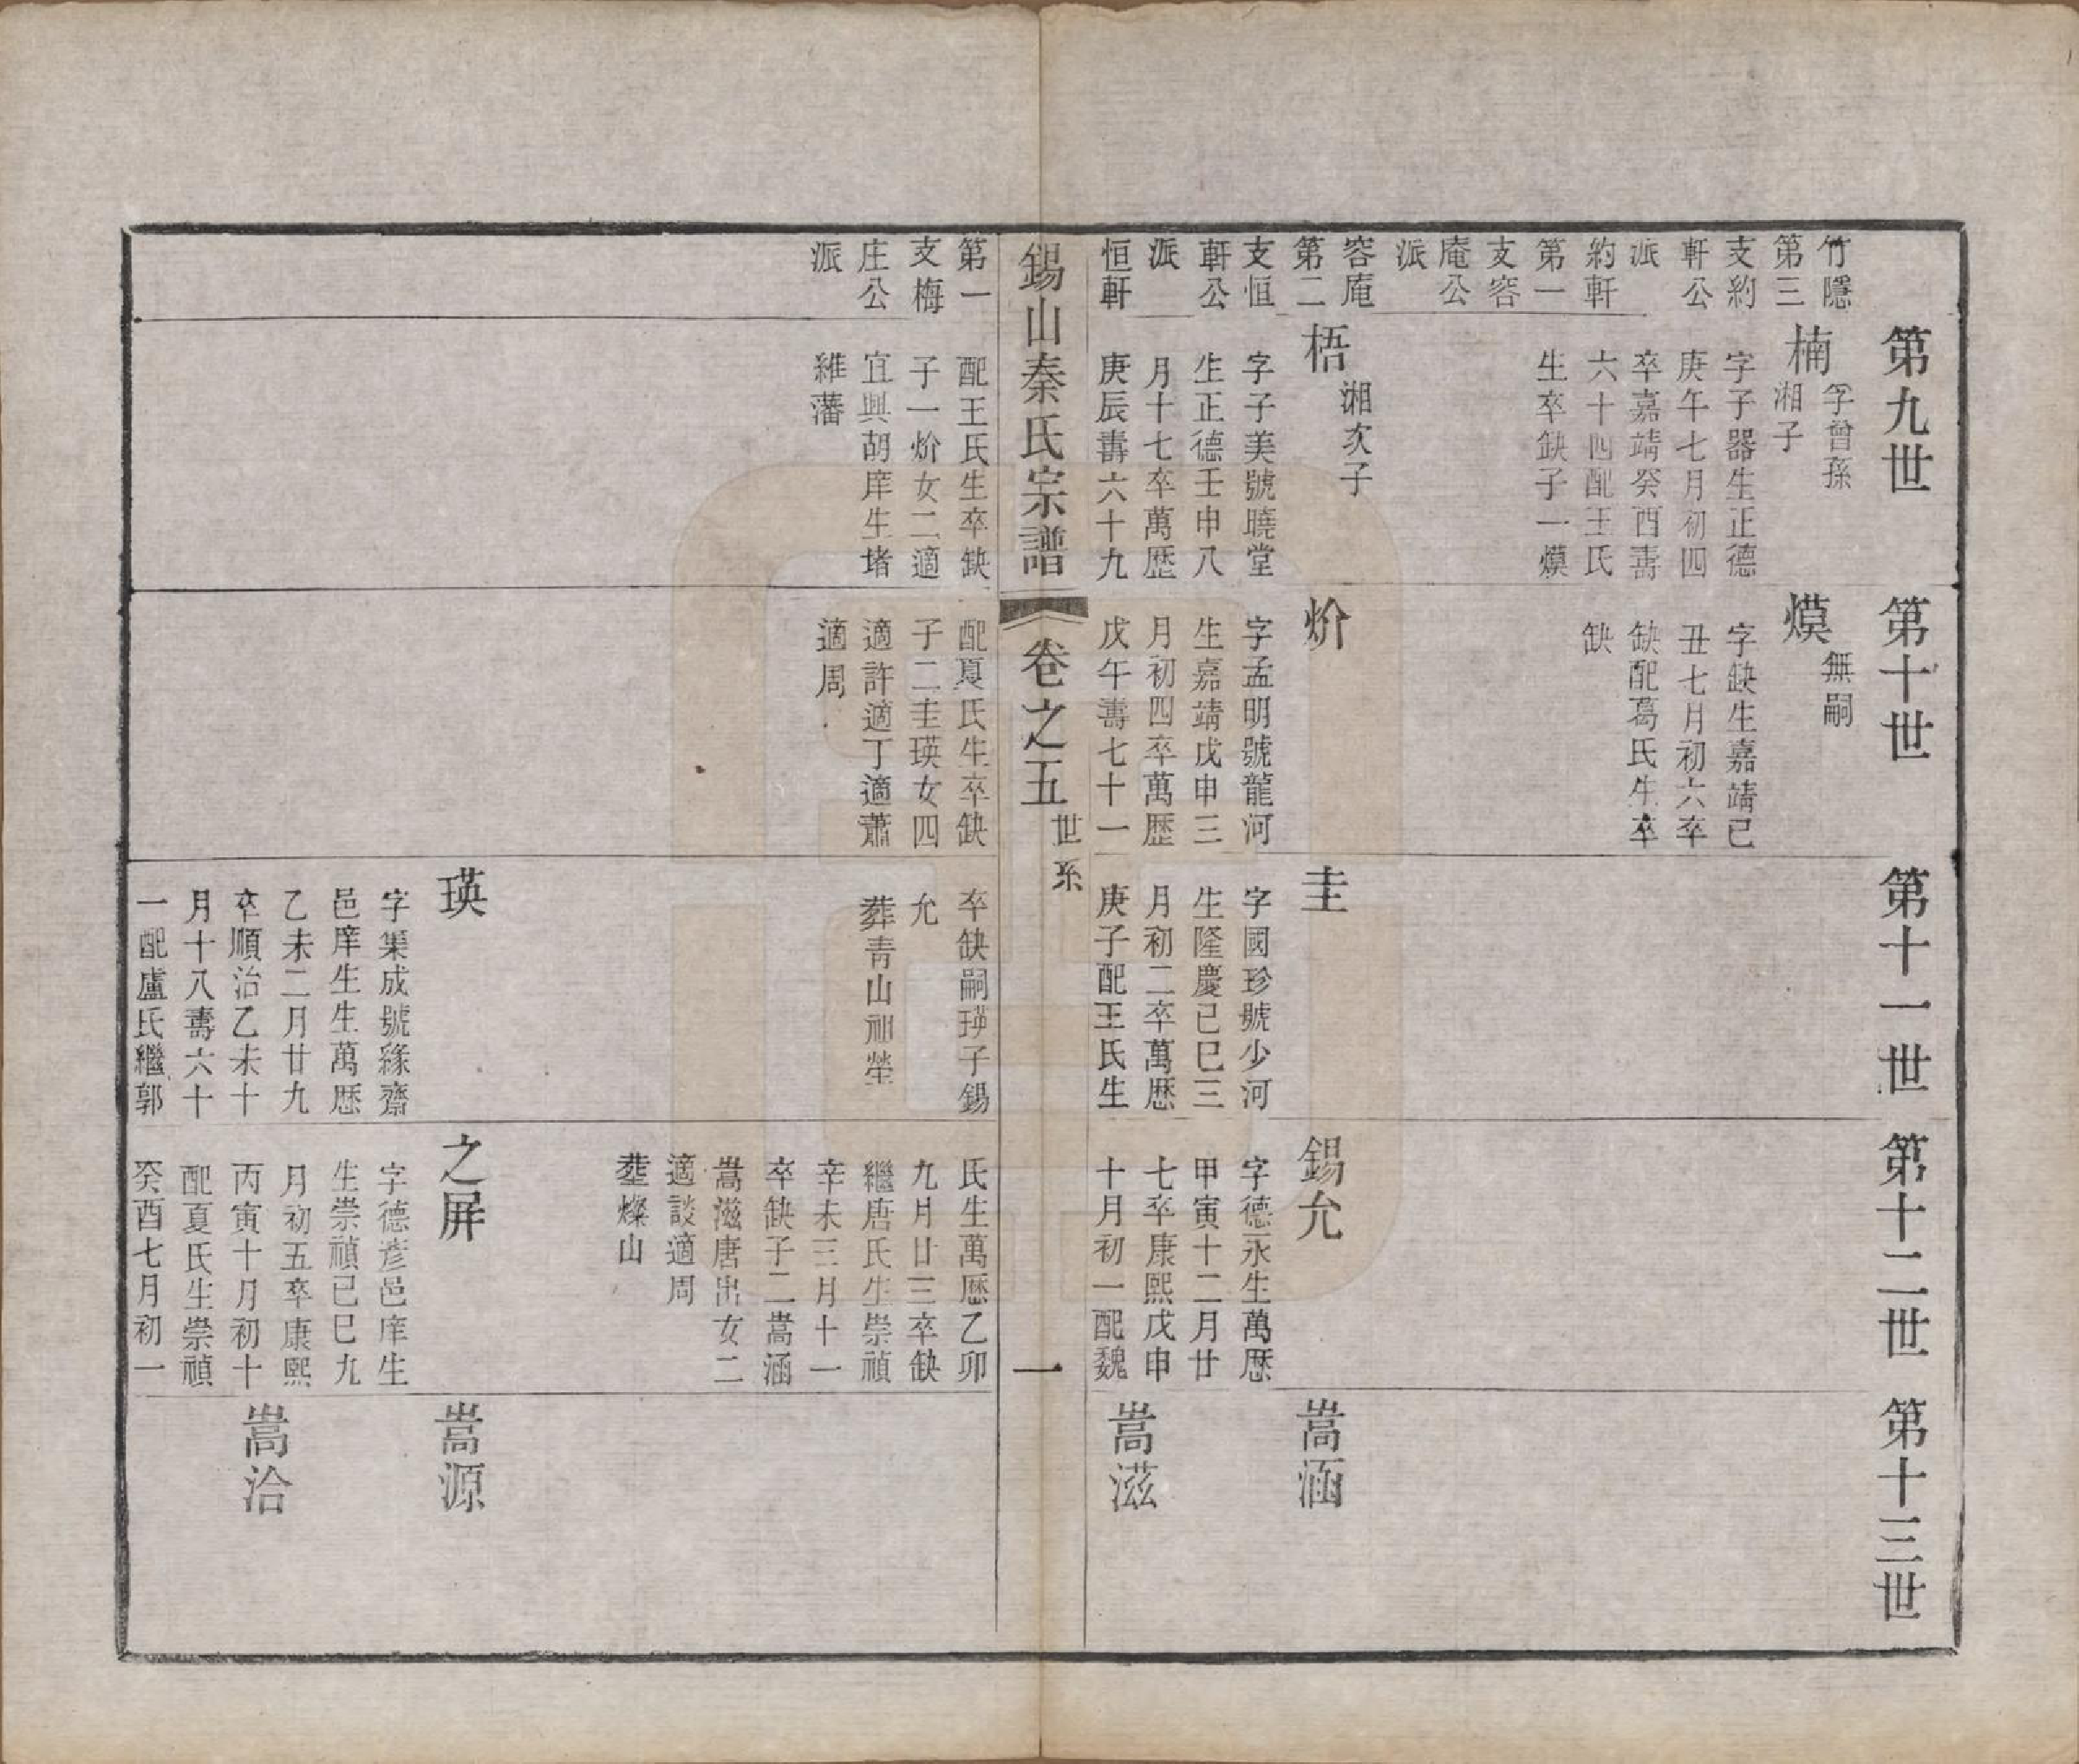 竹隱
第三
支約
軒公
派
約軒
第一
支容
庵公
派
容庵
第二
支恒
軒公
派
恒軒
第九世
楠
孚曾孫
湘子
字子器生正德
庚午七月初四
卒嘉靖癸酉壽
六十四配王氏
生卒缺子一熯
梧
湘次子
字子美號曉堂
生正德壬申八
月十七卒萬歷
庚辰壽六十九
第十世
熯
無嗣
字缺生嘉靖已
丑七月初六卒
缺配葛氏生卒
缺
炌
字孟明號龍河
生嘉靖戊申三
月初四卒萬歷
戊午壽七十一
第十一世
圭
字國珍號少河
生隆慶已巳三
月初二卒萬歷
庚子配王氏生
第十二世
錫允
字德永生萬歷
甲寅十二月廿
七卒康熙戊申
十月初一配魏
第十三世
嵩涵
嵩滋
錫山秦氏宗譜
卷之五
世系
一
第一
支梅
庄公
派
配王氏生卒缺
子一炌女二適
宜興胡庠生堵
維藩
配夏氏生卒缺
子二圭瑛女四
適許適丁適蕭
適周
卒缺嗣瑛子錫
允
葬青山祖塋
瑛
字集成號緣齋
邑庠生生萬歷
乙未二月廿九
卒順治乙未十
月十八壽六十
一配盧氏繼郭
氏生萬歷乙卯
九月廿三卒缺
繼唐氏生崇禎
辛未三月十一
卒缺子二嵩涵
嵩滋唐出女二
適談適周
塟燦山
之屏
字德彥邑庠生
生崇禎已巳九
月初五卒康熙
丙寅十月初十
配夏氏生崇禎
癸酉七月初一
嵩源
嵩洽